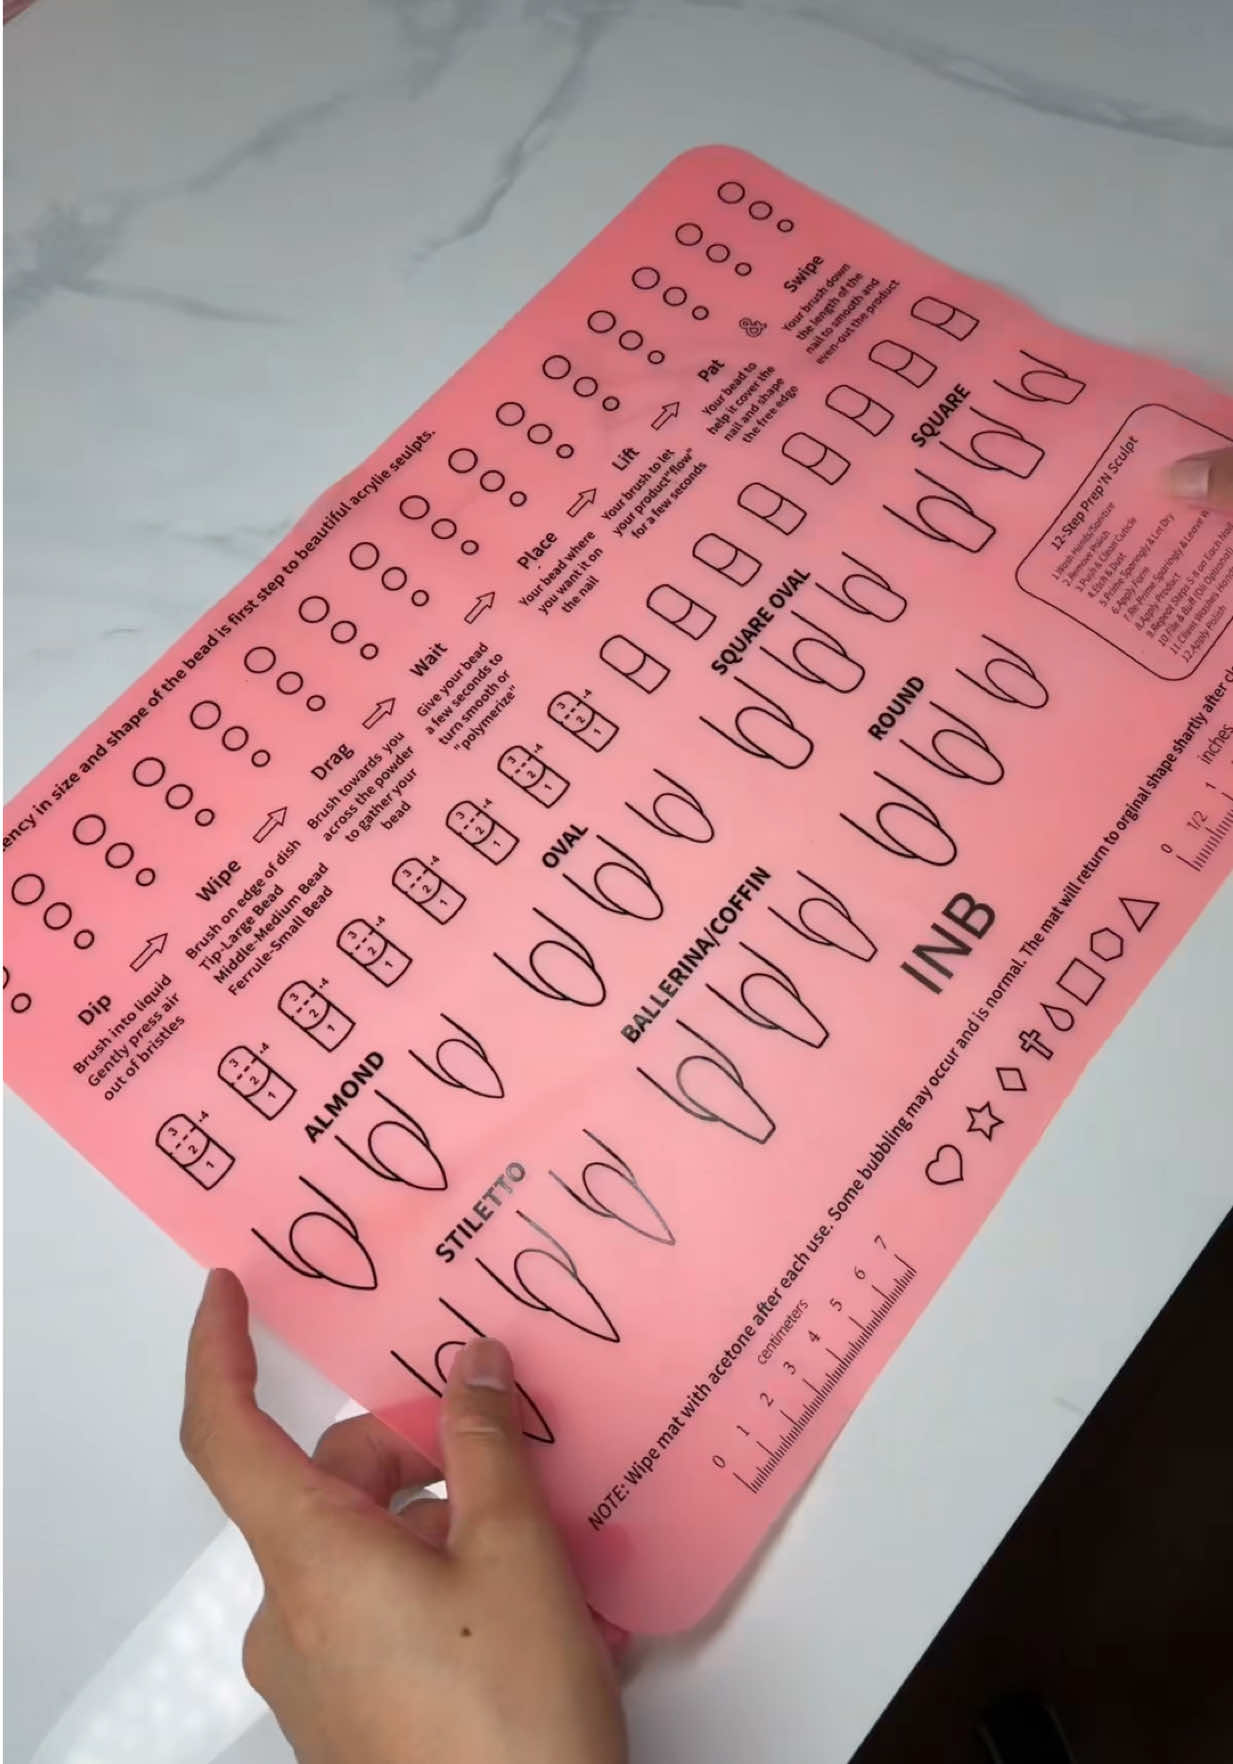 ency in size and shape of the bead is first step to beautiful acrylic seulpts.
Dip
Brush into liquid
Gently press air
out of bristles
Wipe
Brush on edge of dish
Tip-Large Bead
Middle-Medium Bead
Ferrule-Small Bead
Drag
Brush towards you
across the powder
to gather your
bead
Wait
Give your bead
a few seconds to
turn smooth or
"polymerize"
Place
Your bead where
you want it on
the nail
Lift
Your brush to let
your product"flow"
for a few seconds
Pat
Your bead to
help it cover the
nail and shape
the free edge
&
Swipe
Your brush down
the length of the
nail to smooth and
even-out the product
3
2
1
4
3
2
1
4
3
2
1
4
3
2
1
4
3
2
1
4
3
2
1
4
3
2
1
4
3
2
1
4
ALMOND
OVAL
SQUARE OVAL
SQUARE
STILETTO
BALLERINA/COFFIN
ROUND
12-Step Prep'N Sculpt
1.Wash Hands/Sanitize
2.Remove Polish
3.Push & Clean Cuticle
4.Etch & Dust
5.Prime Sparingly & Let Dry
6.Apply Form
7.Re-Prime Sparingly & Leave W
8.Apply Product
9.Repeat Steps 5-8 on Each Nail
10.File & Buff (Oil Optional)
11.Client Washes Hands
12.Apply Polish
INB
NOTE: Wipe mat with acetone after each use. Some bubbling may occur and is normal. The mat will return to orginal shape shartly after cl
centimeters
0 1 2 3 4 5 6 7
inches
0 1/2 1